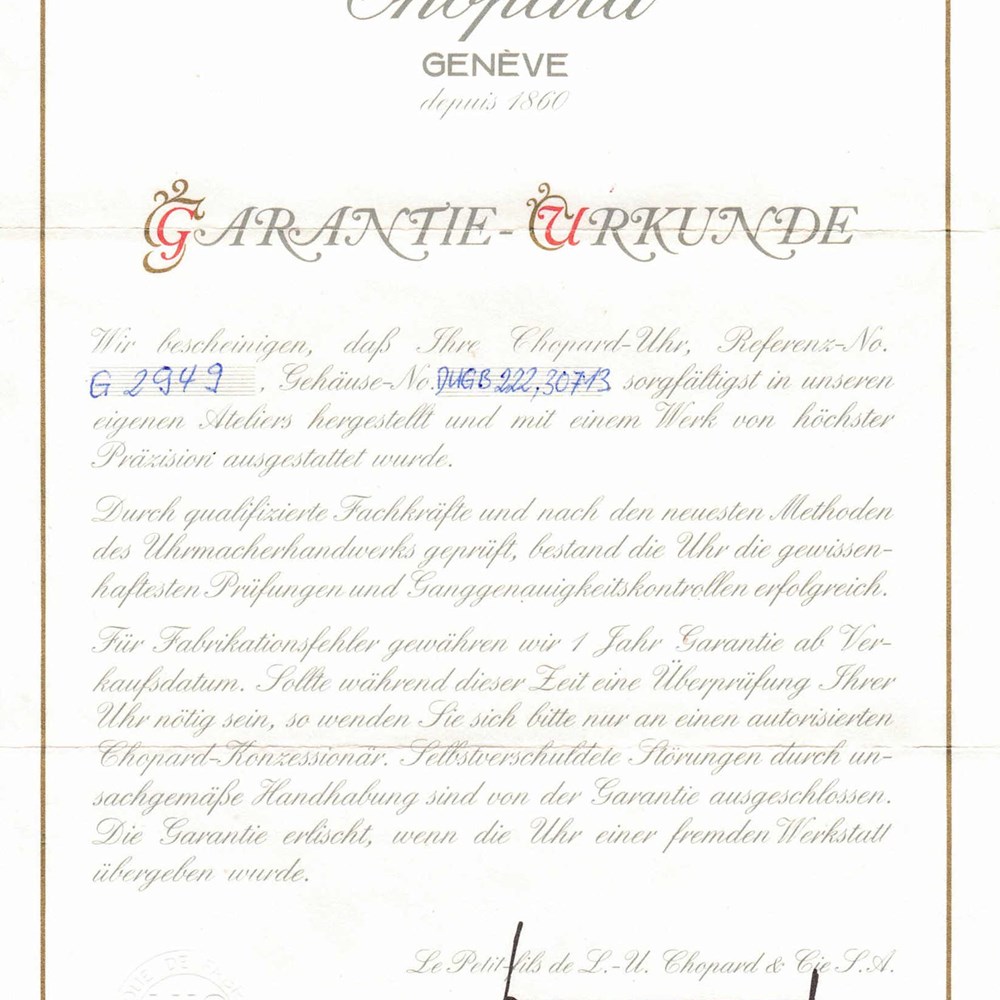 Chopard
GENÈVE
depuis 1860
GARANTIE-URKUNDE
Wir bescheinigen, daß Ihre Chopard-Uhr, Referenz-No.
G 2949, Gehäuse-No. 222,30713 sorgfältigst in unseren
eigenen Ateliers hergestellt und mit einem Werk von höchster
Präzision ausgestattet wurde.
Durch qualifizierte Fachkräfte und nach den neuesten Methoden
des Uhrmacherhandwerks geprüft, bestand die Uhr die gewissen-
haftesten Prüfungen und Ganggenauigkeitskontrollen erfolgreich.
Für Fabrikationsfehler gewähren wir 1 Jahr Garantie ab Ver-
kaufsdatum. Sollte während dieser Zeit eine Überprüfung Ihrer
Uhr nötig sein, so wenden Sie sich bitte nur an einen autorisierten
Chopard-Konzessionär. Selbstverschuldete Störungen durch un-
sachgemäße Handhabung sind von der Garantie ausgeschlossen.
Die Garantie erlischt, wenn die Uhr einer fremden Werkstatt
übergeben wurde.
Le Petit-fils de L.-U. Chopard & Cie S.A.